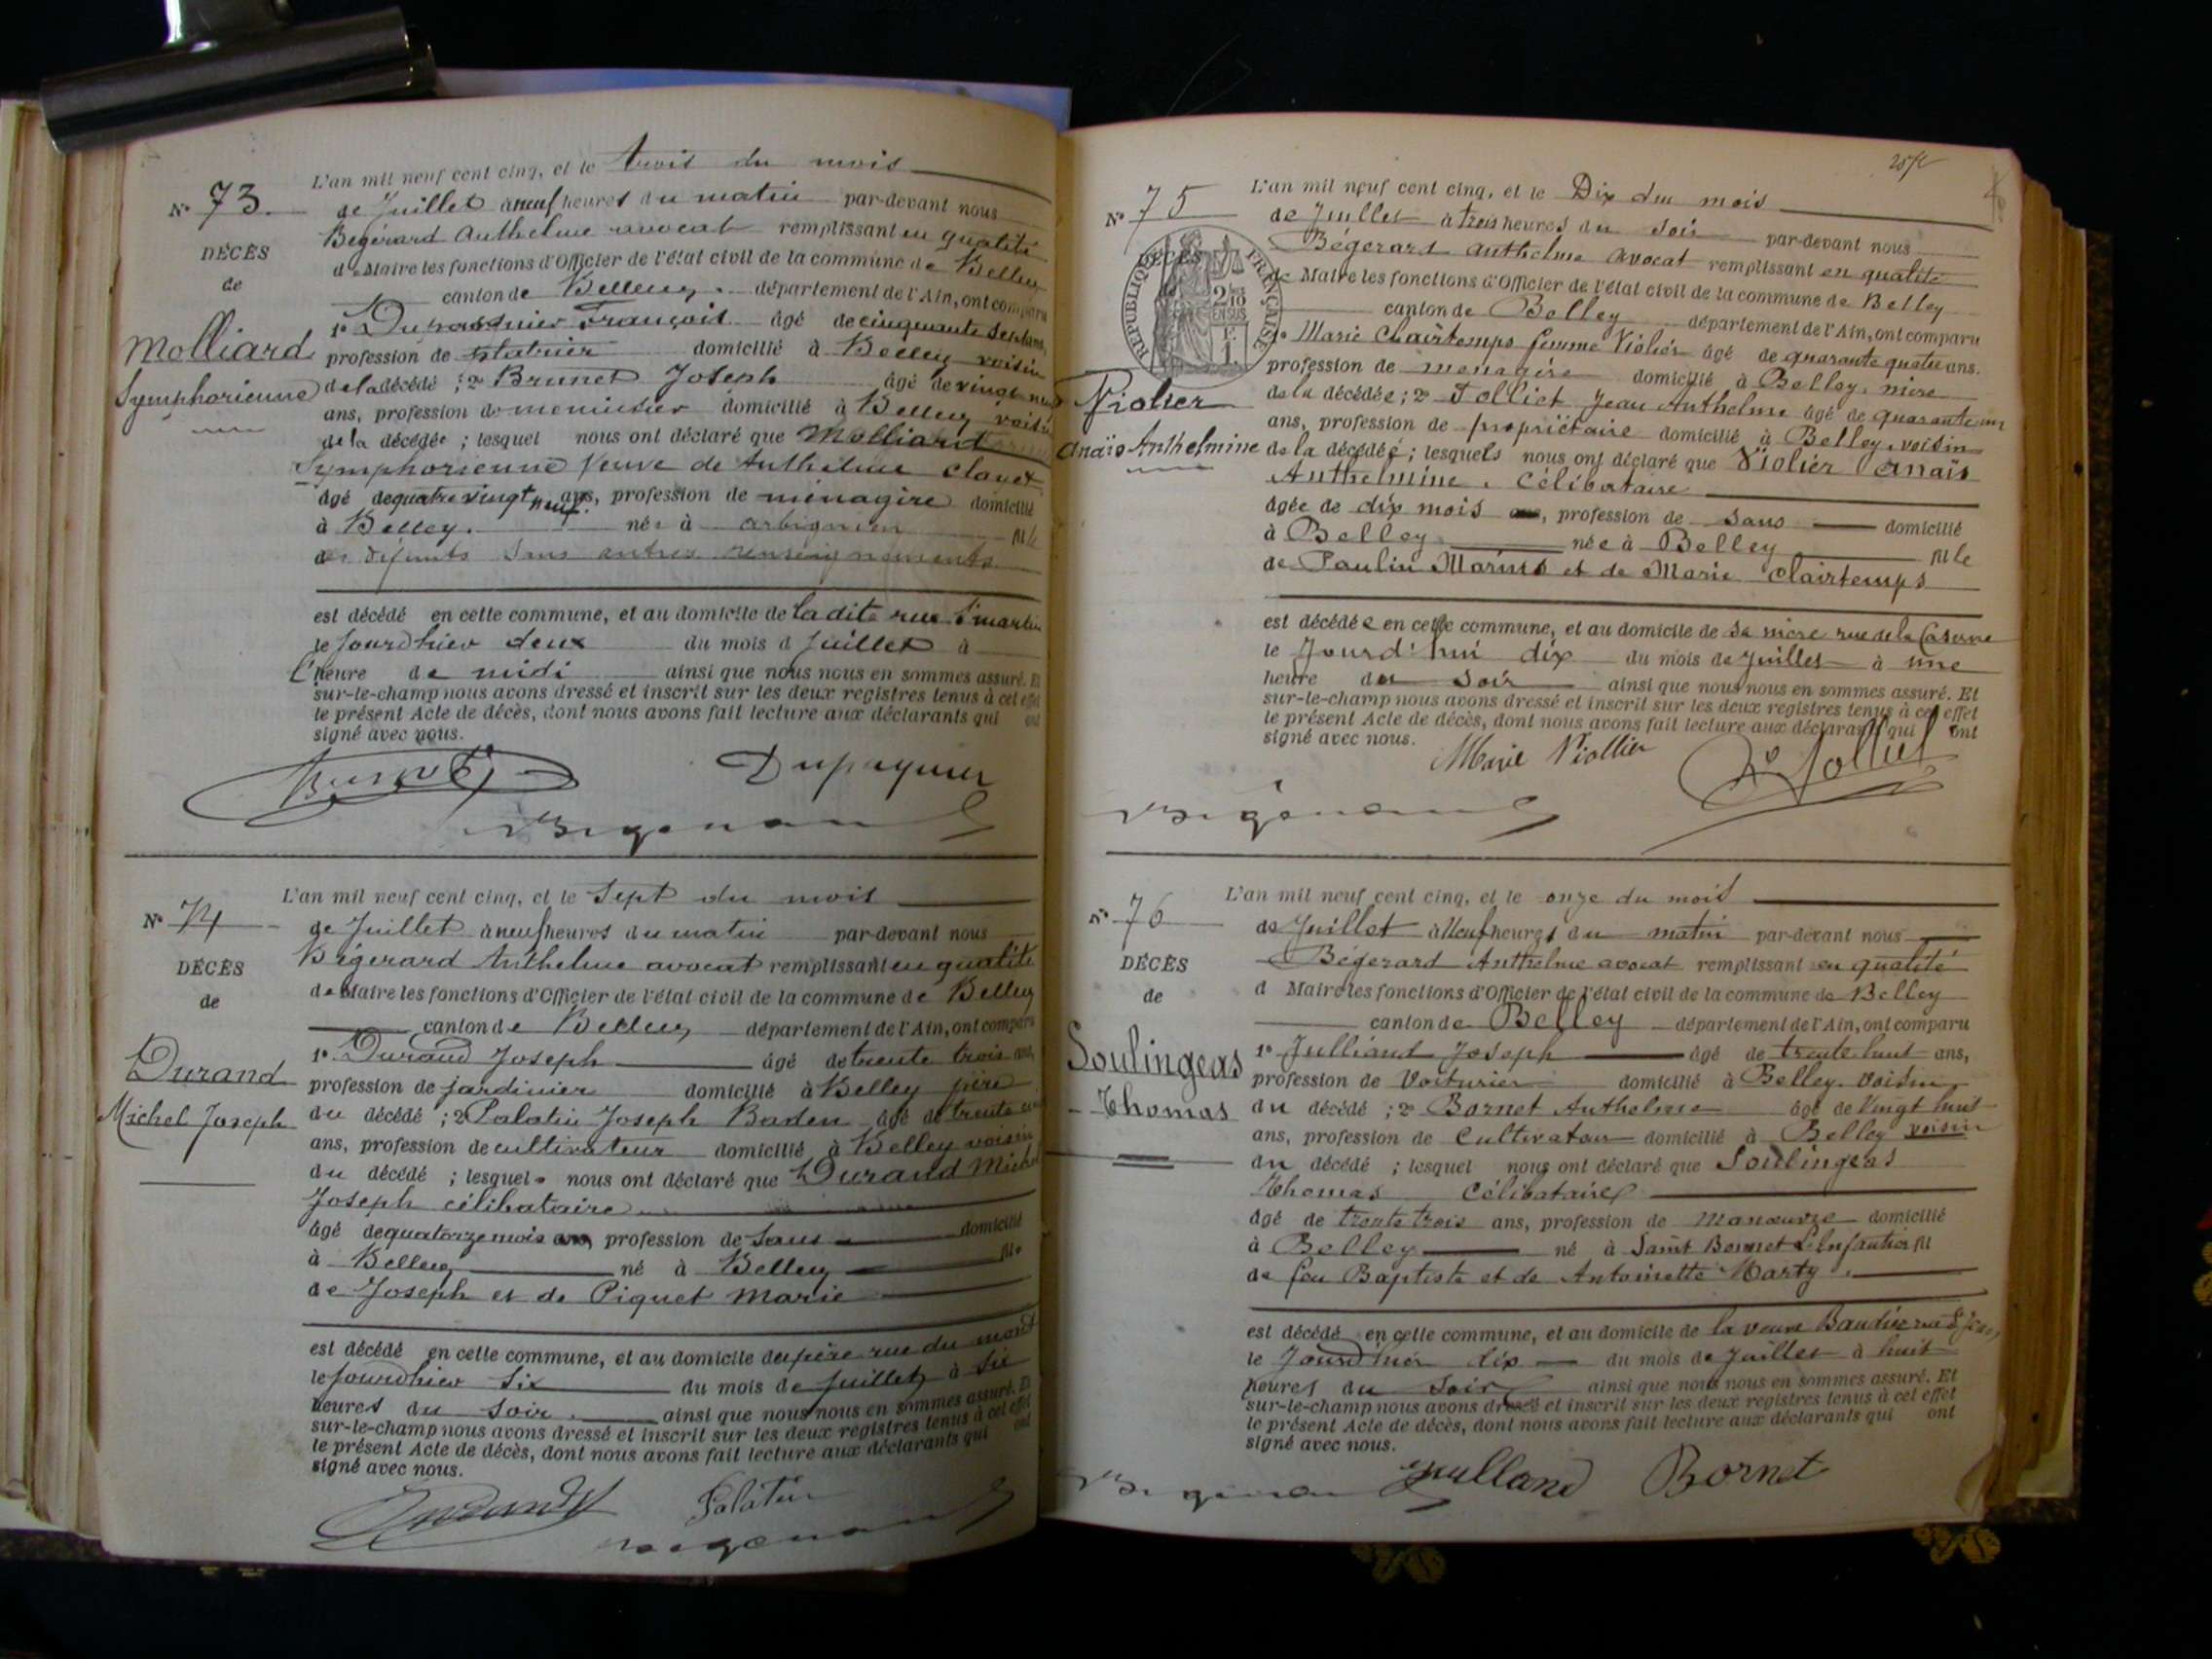 L'an mil neuf cent cinq, et le trois du mois
N° 73.
de Juillet à neuf heures du matin par-devant nous
Bégérard Anthelme avocat remplissant en qualité
DÉCÈS
de Maire les fonctions d'Officier de l'état civil de la commune de Belley
de
canton de Belley. département de l'Ain, ont comparu
1° François âgé de cinquante sept ans,
Molliard
profession de domicilié à Belley voisin
Symphorienne
de la décédé ; 2° Brunet Joseph âgé de vingt neuf
ans, profession de menuisier domicilié à Belley voisin
de la décédée ; lesquel nous ont déclaré que Molliard
Symphorienne veuve de Anthelme
âgé de quatre vingt neuf ans, profession de ménagère domicilié
à Belley. née à arbignieu fille
de défunts sans autres renseignements
est décédé en cette commune, et au domicile de la dite rue St martin
le jourd'hier deux du mois d Juillet à
l'heure de midi ainsi que nous nous en sommes assuré. Et
sur-le-champ nous avons dressé et inscrit sur les deux registres tenus à cet effet
le présent Acte de décès, dont nous avons fait lecture aux déclarants qui ont
signé avec nous.
Brunet
L'an mil neuf cent cinq, et le Sept du mois
N° 74
de Juillet à neuf heures du matin par-devant nous
Bégerard Anthelme avocat remplissant en qualité
DÉCÈS
de Maire les fonctions d'Officier de l'état civil de la commune de Belley
de
canton de Belley département de l'Ain, ont comparu
1° Durand Joseph âgé de trente trois ans,
Durand
profession de jardinier domicilié à Belley père
Michel Joseph
du décédé ; 2° Palatin Joseph Baden âgé de trente un
ans, profession de cultivateur domicilié à Belley voisin
du décédé ; lesquels nous ont déclaré que Durand Michel
Joseph célibataire
âgé de quatorze mois ans, profession de sans domicilié
à Belley né à Belley fils
de Joseph et de Piquet Marie
est décédé en cette commune, et au domicile du père rue du
le jourd'hier six du mois de Juillet à six
heures du soir. ainsi que nous nous en sommes assuré. Et
sur-le-champ nous avons dressé et inscrit sur les deux registres tenus à cet effet
le présent Acte de décès, dont nous avons fait lecture aux déclarants qui ont
signé avec nous.
Durand J Palatin
L'an mil neuf cent cinq, et le Dix du mois
N° 75
de Juillet à trois heures du soir par-devant nous
Bégerard Anthelme avocat remplissant en qualité
DÉCÈS
RÉPUBLIQUE FRANÇAISE
2/10 EN SUS
de Maire les fonctions d'Officier de l'état civil de la commune de Belley
canton de Belley département de l'Ain, ont comparu
1° Marie Clairtemps femme Violier âgé de quarante quatre ans.
profession de menagère domicilié à Belley. mère
Violier
de la décédée ; 2° Jolliet Jean Anthelme âgé de quarante un
ans, profession de propriétaire domicilié à Belley. voisin
Anaïs Anthelmine
de la décédée ; lesquels nous ont déclaré que Violier Anaïs
Anthelmine. Célibataire
âgée de dix mois ans, profession de sans domicilié
à Belley née à Belley fille
de Paulin Marius et de Marie Clairtemps
est décédée en cette commune, et au domicile de sa mère rue de la Caserne
le jourd'hui dix du mois de Juillet à une
heure du soir ainsi que nous nous en sommes assuré. Et
sur-le-champ nous avons dressé et inscrit sur les deux registres tenus à cet effet
le présent Acte de décès, dont nous avons fait lecture aux déclarants qui ont
signé avec nous.
Marie Viollier Jolliet
L'an mil neuf cent cinq, et le onze du mois
N° 76
de Juillet à Neuf heures du matin par-devant nous
Bégerard Anthelme avocat remplissant en qualité
DÉCÈS
d Maire les fonctions d'Officier de l'état civil de la commune de Belley
de
canton de Belley département de l'Ain, ont comparu
1° Julliand Joseph âgé de trente huit ans,
Soulingeas
profession de Voiturier domicilié à Belley. voisin
Thomas
du décédé ; 2° Bornet Anthelme âgé de vingt huit
ans, profession de Cultivateur domicilié à Belley voisin
du décédé ; lesquel nous ont déclaré que Soulingeas
Thomas Célibataire
âgé de trente trois ans, profession de manœuvre domicilié
à Belley né à Saint Bonnet L'Enfantier fil
de feu Baptiste et de Antoinette Marty.
est décédé en cette commune, et au domicile de la veuve
le jourd'hier dix du mois de Juillet à huit
heures du soir ainsi que nous nous en sommes assuré. Et
sur-le-champ nous avons dressé et inscrit sur les deux registres tenus à cet effet
le présent Acte de décès, dont nous avons fait lecture aux déclarants qui ont
signé avec nous.
Julland Bornet